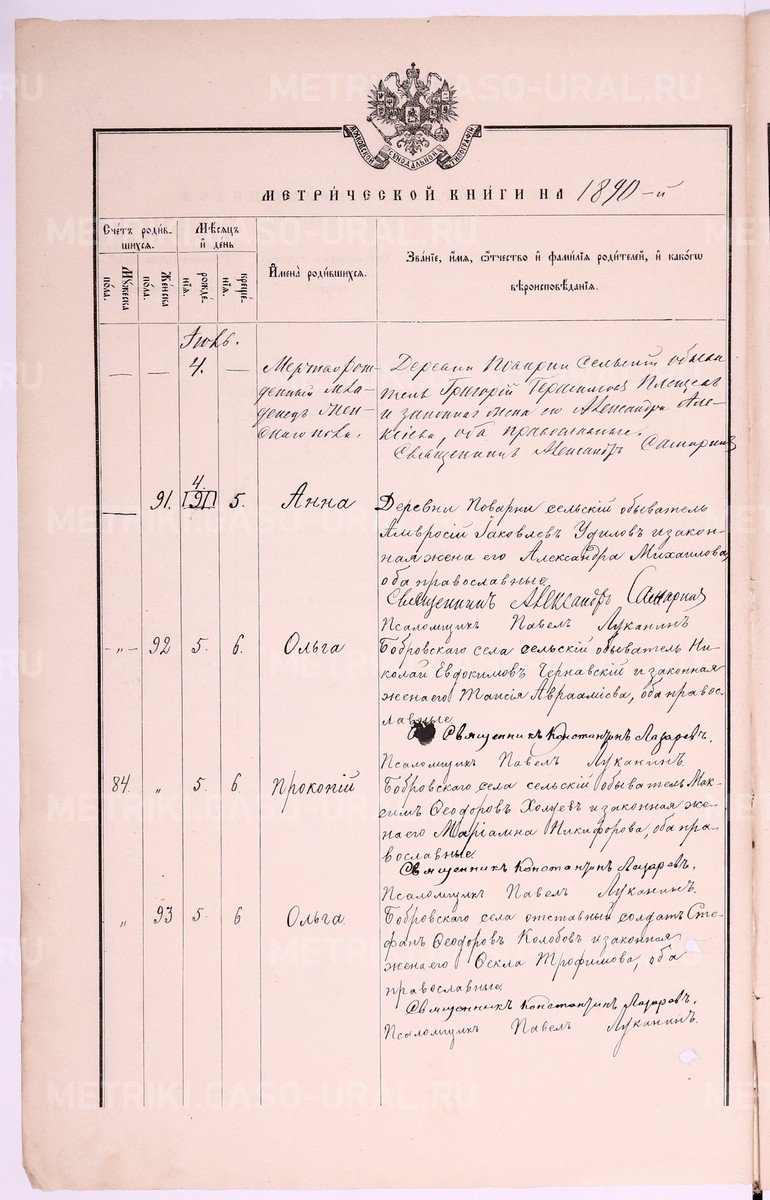 МОСКОВСКОЙ СѴНОДАЛЬНОЙ ТИПОГРАФІИ
МЕТРИ́ЧЕСКОЙ КНИ́ГИ НА 1890-й
Сче́тъ роди́в-
шихся.
Мѣ́сяцъ
и҆ де́нь
И҆мена̀ роди́вшихся.
Зва́нїе, и҆́мя, ѻ҆́тчество и҆ фами́лїѧ роди́телей, и҆ како́гѡ
вѣроисповѣ́данїѧ.
Мꙋ́жеска
по́ла.
Же́нска
по́ла.
рожде́-
нїѧ.
креще́-
нїѧ.
Іюль.
— — 4. —
Мертворож-
денный мла-
денецъ жен-
скаго пола.
Деревни Поварни сельскій обыва-
тель Григорій Герасимовъ
и законная жена его Александра Але-
ксіева, оба православные.
Священникъ Александръ Самаринъ
— 91. 4. 91 5. Анна
Деревни Поварни сельскій обыватель
Амвросій Іаковлевъ Удиловъ и закон-
ная жена его Александра Михаилова,
оба православные
Священникъ Александръ Самаринъ
Псаломщикъ Павелъ Луканинъ
-„- 92 5. 6. Ольга
Бобровскаго села сельскій обыватель Ни-
колай Евдокимовъ Чернавскій и законная
жена его Таисія Авраамiева, оба правос-
лавные
Священникъ Константинъ Лазаревъ.
Псаломщикъ Павелъ Луканинъ.
84. „ 5. 6. Прокопій
Бобровскаго села сельскій обыватель Мак-
симъ Ѳеодоровъ Холуевъ и законная же-
на его Маріамна Никифорова, оба пра-
вославные.
Священникъ Константинъ Лазаревъ.
Псаломщикъ Павелъ Луканинъ.
„ 93 5. 6 Ольга.
Бобровскаго села отставный солдатъ Сте-
фанъ Ѳеодоровъ Колобовъ и законная
жена его Ѳекла Трофимова, оба
православные
Священникъ Константинъ Лазаревъ.
Псаломщикъ Павелъ Луканинъ.
METRIKI.GASO-URAL.RU